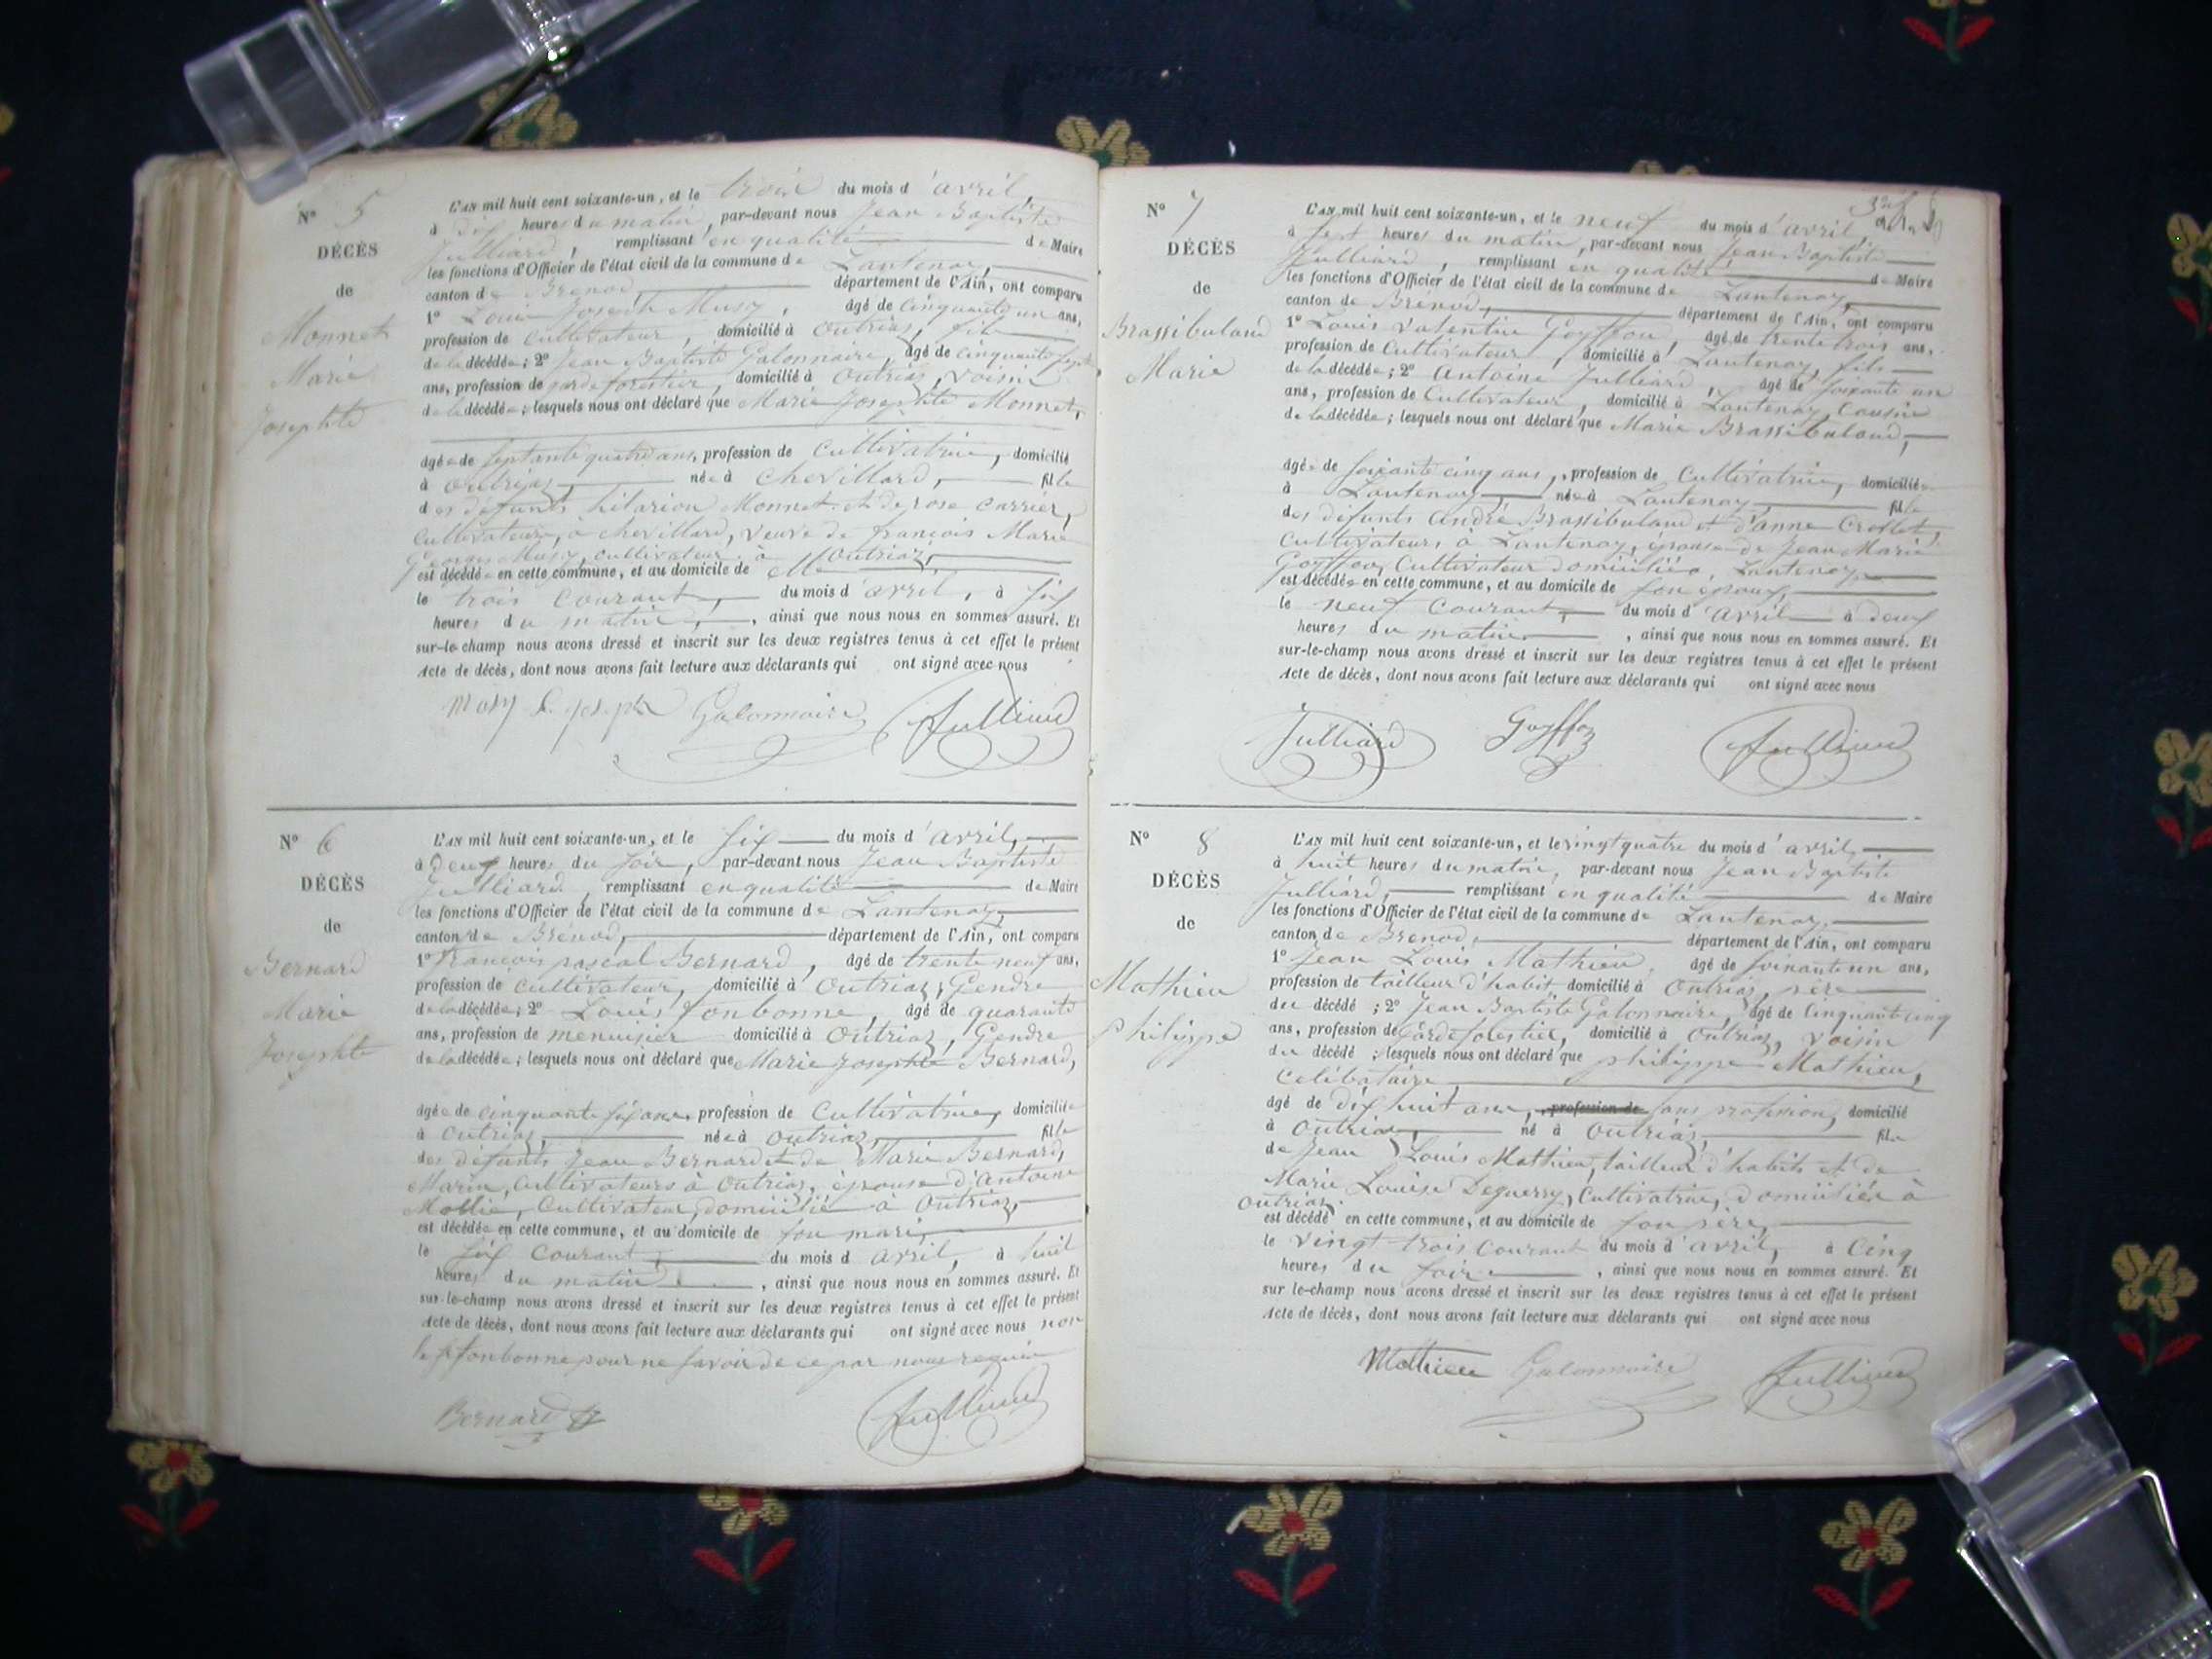 N° 5
DÉCÈS
de
Monnet
Marie
Josephte
L'an mil huit cent soixante-un, et le trois du mois d'avril,
à dix heures du matin, par-devant nous Jean Baptiste
Julliard, remplissant en qualité de Maire
les fonctions d'Officier de l'état civil de la commune de Lantenay,
canton de Brénod, département de l'Ain, ont comparu
1° Louis Joseph Musy, âgé de cinquante un ans,
profession de cultivateur, domicilié à Outriaz, fils
de la décédée; 2° Jean Baptiste Galonnaire, âgé de cinquante sept
ans, profession de garde forestier, domicilié à Outriaz, voisin
de la décédée; lesquels nous ont déclaré que Marie Josephte Monnet,
âgée de septante quatre ans, profession de cultivatrice, domicilié
à Outriaz, née à Chevillard, fille
des défunts hilarion Monnet et de rose carrier,
cultivateurs, à chevillard, veuve de françois Marie
Georges Musy, cultivateur à Outriaz,
est décédée en cette commune, et au domicile de
le trois courant, du mois d'avril, à six
heures du matin, ainsi que nous nous en sommes assuré. Et
sur-le-champ nous avons dressé et inscrit sur les deux registres tenus à cet effet le présent
Acte de décès, dont nous avons fait lecture aux déclarants qui ont signé avec nous
Musy L. joseph Galonnaire Julliard
N° 6
DÉCÈS
de
Bernard
Marie
Josephte
L'an mil huit cent soixante-un, et le six du mois d'avril,
à deux heures du soir, par-devant nous Jean Baptiste
Julliard, remplissant en qualité de Maire
les fonctions d'Officier de l'état civil de la commune de Lantenay,
canton de Brénod, département de l'Ain, ont comparu
1° françois pascal Bernard, âgé de trente neuf ans,
profession de cultivateur, domicilié à Outriaz, Gendre
de la décédée; 2° Louis fonbonne, âgé de quarante
ans, profession de menuisier domicilié à Outriaz, Gendre
de la décédée; lesquels nous ont déclaré que Marie Josephte Bernard,
âgée de cinquante six ans, profession de cultivatrice, domicilié
à Outriaz, née à Outriaz, fille
des défunts Jean Bernard et de Marie Bernard,
Marin, cultivateurs à Outriaz, épouse d'antoine
Mollie, Cultivateur, domicilié à Outriaz,
est décédée en cette commune, et au domicile de son mari,
le six courant, du mois d'avril, à huit
heures du matin, ainsi que nous nous en sommes assuré. Et
sur-le-champ nous avons dressé et inscrit sur les deux registres tenus à cet effet le présent
Acte de décès, dont nous avons fait lecture aux déclarants qui ont signé avec nous non
le s fonbonne pour ne savoir de ce par nous requis
Bernard Julliard
N° 7
DÉCÈS
de
Brassibuland
Marie
L'an mil huit cent soixante-un, et le neuf du mois d'avril
à sept heures du matin, par-devant nous Jean Baptiste
Julliard, remplissant en qualité de Maire
les fonctions d'Officier de l'état civil de la commune de Lantenay,
canton de Brénod, département de l'Ain, ont comparu
1° Louis valentin Goyffon, âgé de trente trois ans,
profession de Cultivateur, domicilié à Lantenay, fils
de la décédée; 2° antoine Julliard, âgé de soixante un
ans, profession de Cultivateur, domicilié à Lantenay, Cousin
de la décédée; lesquels nous ont déclaré que Marie Brassibuland,
âgée de soixante cinq ans, profession de Cultivatrice, domiciliée
à Lantenay, née à Lantenay, fille
des défunts andré Brassibuland et d'anne Crollet,
Cultivateurs, à Lantenay, épouse de Jean Marie
Goyffon, Cultivateur domicilié à Lantenay
est décédée en cette commune, et au domicile de son époux,
le neuf courant, du mois d'avril à deux
heures du matin, ainsi que nous nous en sommes assuré. Et
sur-le-champ nous avons dressé et inscrit sur les deux registres tenus à cet effet le présent
Acte de décès, dont nous avons fait lecture aux déclarants qui ont signé avec nous
Julliard Goyffon Julliard
N° 8
DÉCÈS
de
Mathieu
philippe
L'an mil huit cent soixante-un, et le vingt quatre du mois d'avril,
à huit heures du matin, par-devant nous Jean Baptiste
Julliard, remplissant en qualité de Maire
les fonctions d'Officier de l'état civil de la commune de Lantenay,
canton de Brenod, département de l'Ain, ont comparu
1° Jean Louis Mathieu, âgé de soixante un ans,
profession de tailleur d'habit domicilié à Outriaz, père
du décédé; 2° Jean Baptiste Galonnaire, âgé de Cinquante cinq
ans, profession de garde forestier, domicilié à Outriaz, voisin
du décédé; lesquels nous ont déclaré que philippe Mathieu,
célibataire
âgé de dix huit ans, profession de sans profession, domicilié
à Outriaz, né à Outriaz, fils
de Jean Louis Mathieu, tailleur d'habits et de
Marie Louise Deguerry, Cultivatrice, domiciliés à
Outriaz,
est décédé en cette commune, et au domicile de son père,
le vingt trois courant du mois d'avril, à Cinq
heures du soir, ainsi que nous nous en sommes assuré. Et
sur le-champ nous avons dressé et inscrit sur les deux registres tenus à cet effet le présent
Acte de décès, dont nous avons fait lecture aux déclarants qui ont signé avec nous
Mathieu Galonnaire Julliard